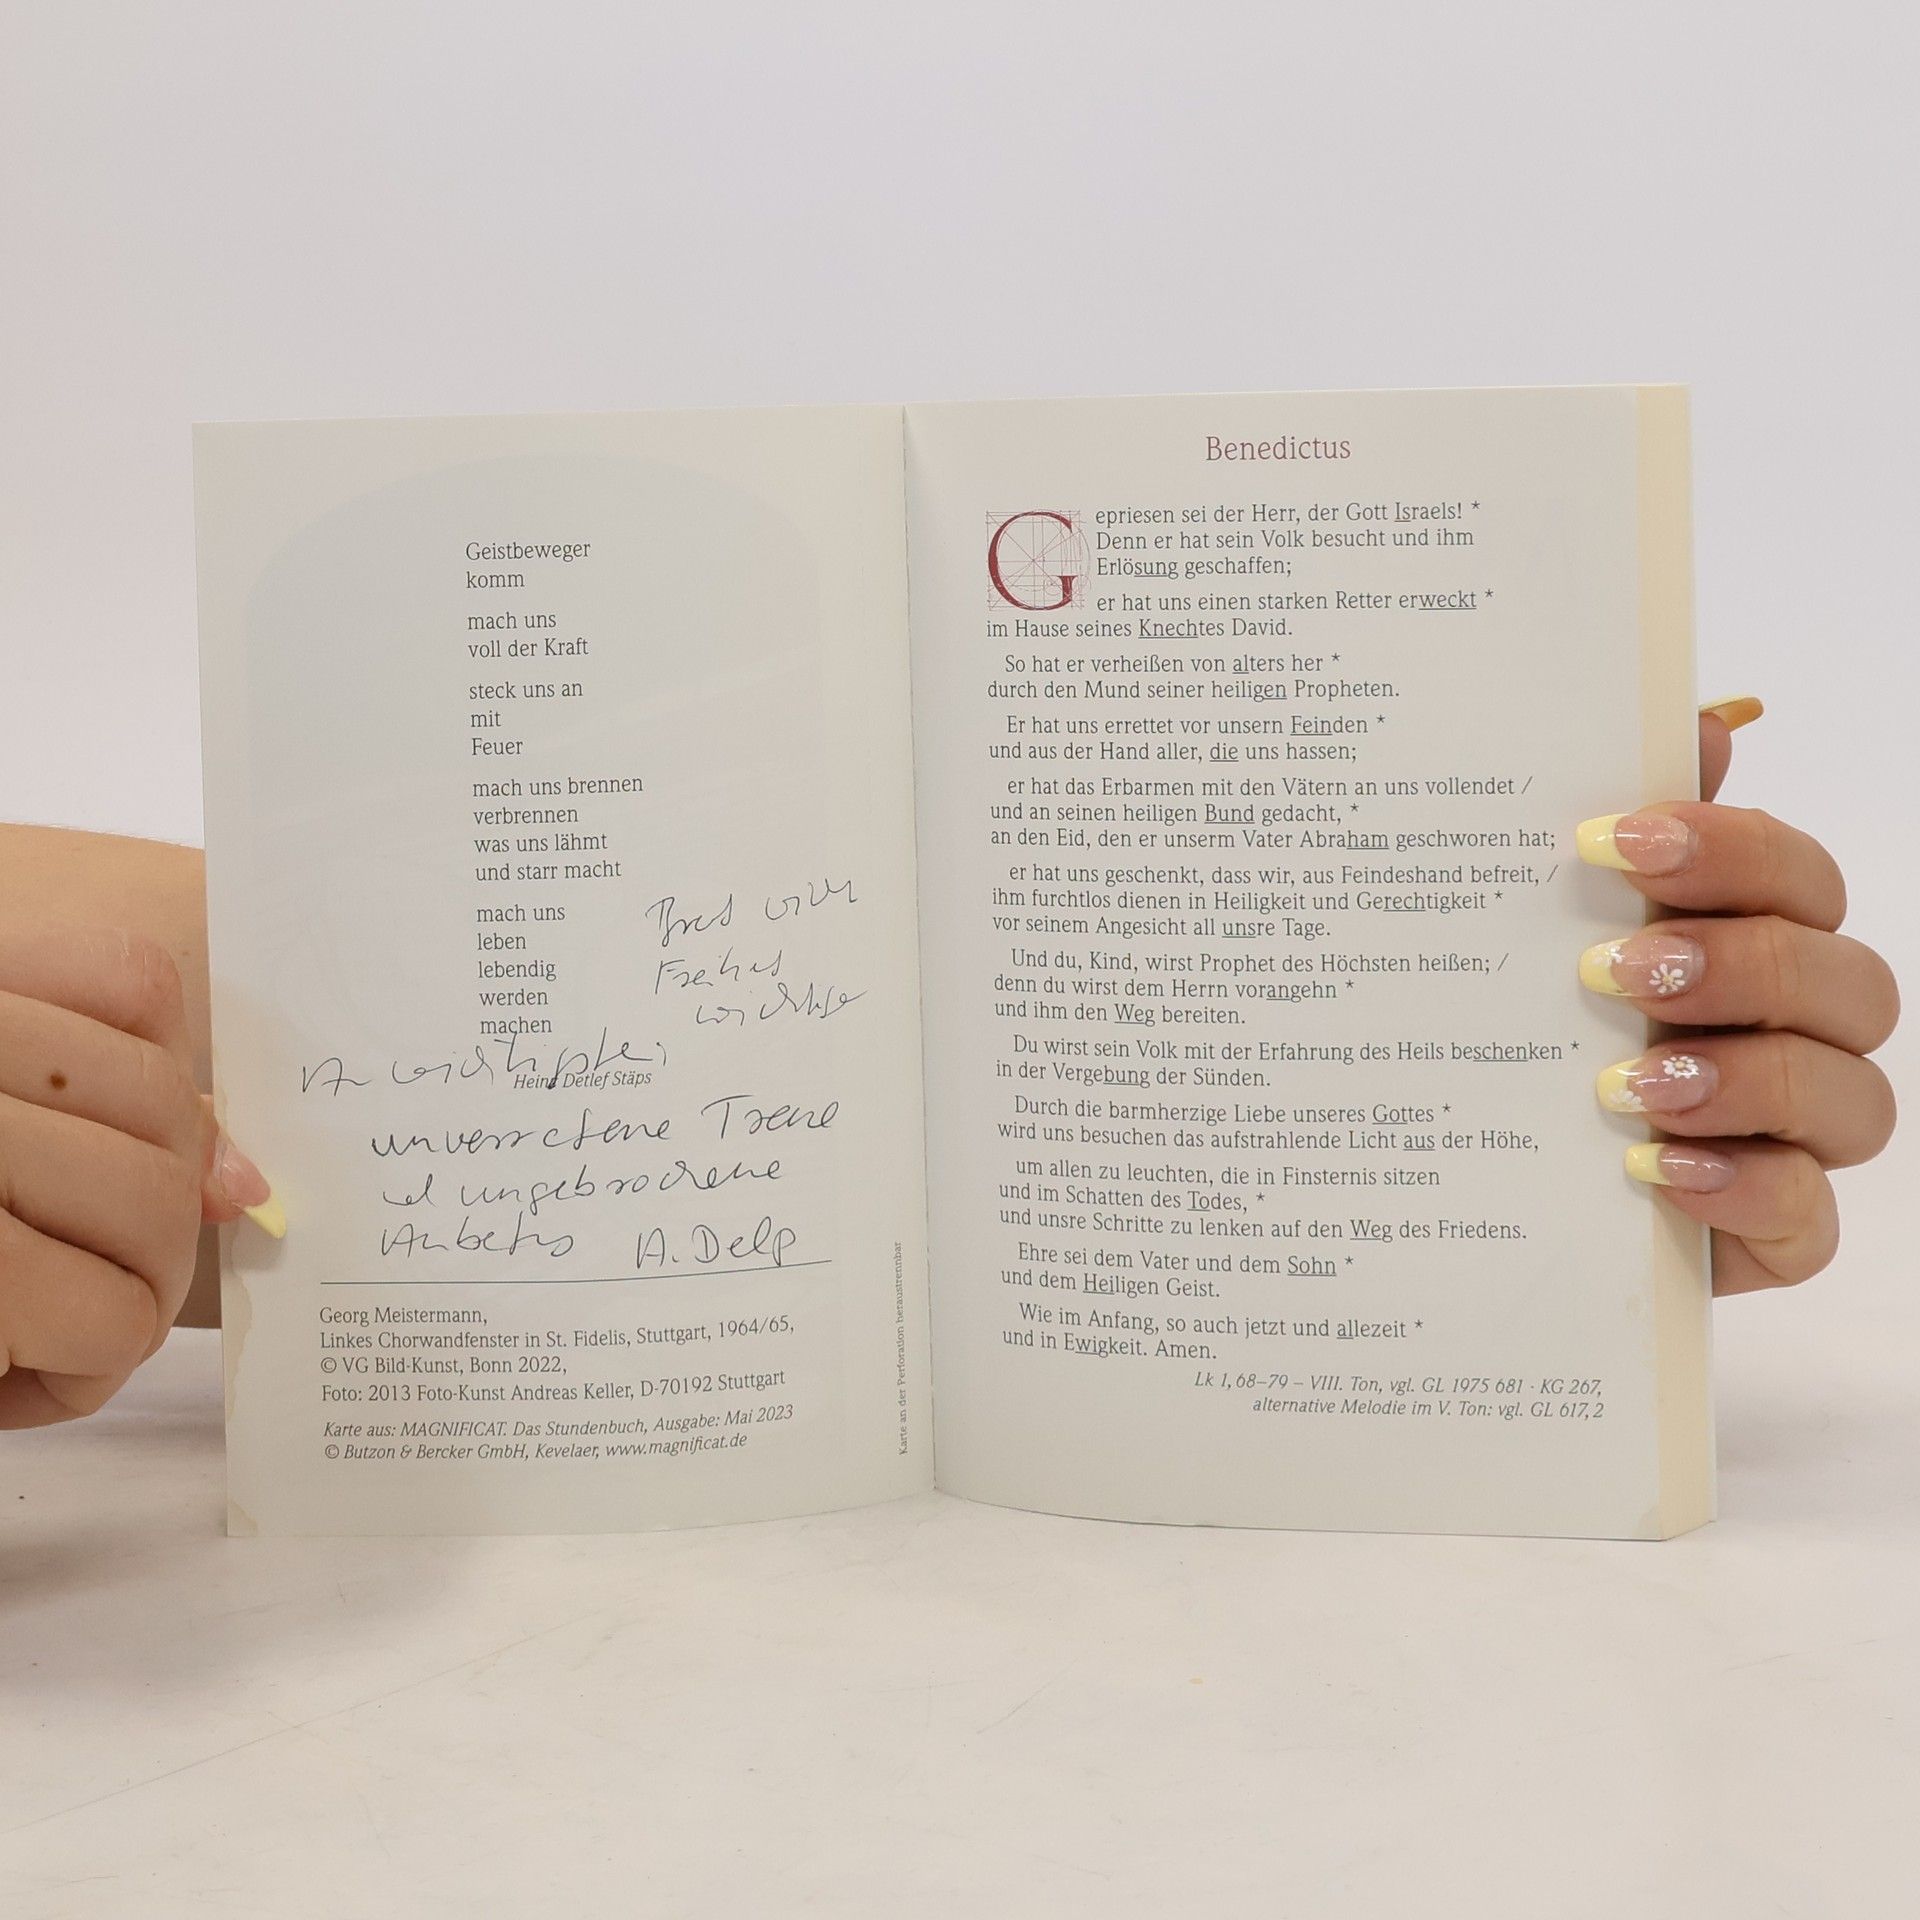 Geistbeweger
komm
mach uns
voll der Kraft
steck uns an
mit
Feuer
mach uns brennen
verbrennen
was uns lähmt
und starr macht
mach uns
leben
lebendig
werden
machen
Heinz Detlef Stäps
Brot
Freiheit
wichtige
Am wichtigsten
unverratene Treue
ungebrochene
Anbetung A. Delp
Georg Meistermann,
Linkes Chorwandfenster in St. Fidelis, Stuttgart, 1964/65,
© VG Bild-Kunst, Bonn 2022,
Foto: 2013 Foto-Kunst Andreas Keller, D-70192 Stuttgart
Karte aus: MAGNIFICAT. Das Stundenbuch, Ausgabe: Mai 2023
© Butzon & Bercker GmbH, Kevelaer, www.magnificat.de
Karte an der Perforation heraustrennbar
Benedictus
Gepriesen sei der Herr, der Gott Israels! *
Denn er hat sein Volk besucht und ihm
Erlösung geschaffen;
er hat uns einen starken Retter erweckt *
im Hause seines Knechtes David.
So hat er verheißen von alters her *
durch den Mund seiner heiligen Propheten.
Er hat uns errettet vor unsern Feinden *
und aus der Hand aller, die uns hassen;
er hat das Erbarmen mit den Vätern an uns vollendet /
und an seinen heiligen Bund gedacht, *
an den Eid, den er unserm Vater Abraham geschworen hat;
er hat uns geschenkt, dass wir, aus Feindeshand befreit, /
ihm furchtlos dienen in Heiligkeit und Gerechtigkeit *
vor seinem Angesicht all unsre Tage.
Und du, Kind, wirst Prophet des Höchsten heißen; /
denn du wirst dem Herrn vorangehn *
und ihm den Weg bereiten.
Du wirst sein Volk mit der Erfahrung des Heils beschenken *
in der Vergebung der Sünden.
Durch die barmherzige Liebe unseres Gottes *
wird uns besuchen das aufstrahlende Licht aus der Höhe,
um allen zu leuchten, die in Finsternis sitzen
und im Schatten des Todes, *
und unsre Schritte zu lenken auf den Weg des Friedens.
Ehre sei dem Vater und dem Sohn *
und dem Heiligen Geist.
Wie im Anfang, so auch jetzt und allezeit *
und in Ewigkeit. Amen.
Lk 1, 68–79 – VIII. Ton, vgl. GL 1975 681 · KG 267,
alternative Melodie im V. Ton: vgl. GL 617, 2